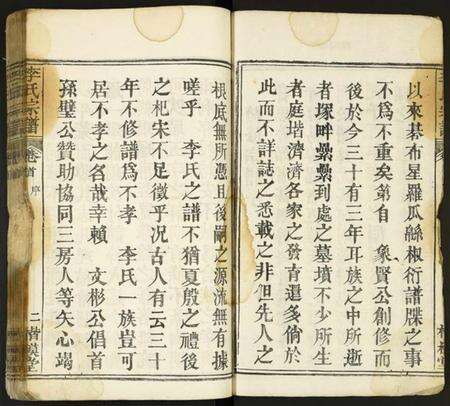 以來棊布星羅瓜緜椒衍譜牒之事
不爲不重矣第自　象賢公創修而
後於今三十有三年耳族之中所逝
者塚畔纍纍到處之墓墳不少所生
者庭堦濟濟各家之發育還多倘於
此而不詳誌之悉載之非但先人之
根底無所憑且後嗣之源流無有據
嗟乎　李氏之譜不猶夏殷之禮後
之杞宋不足徵乎況古人有云三十
年不修譜爲不孝　李氏一族豈可
居不孝之名哉幸賴　文彬公倡首
孫璧公贊助協同三房人等矢心竭
李氏宗譜
卷首　序
二　楷模堂